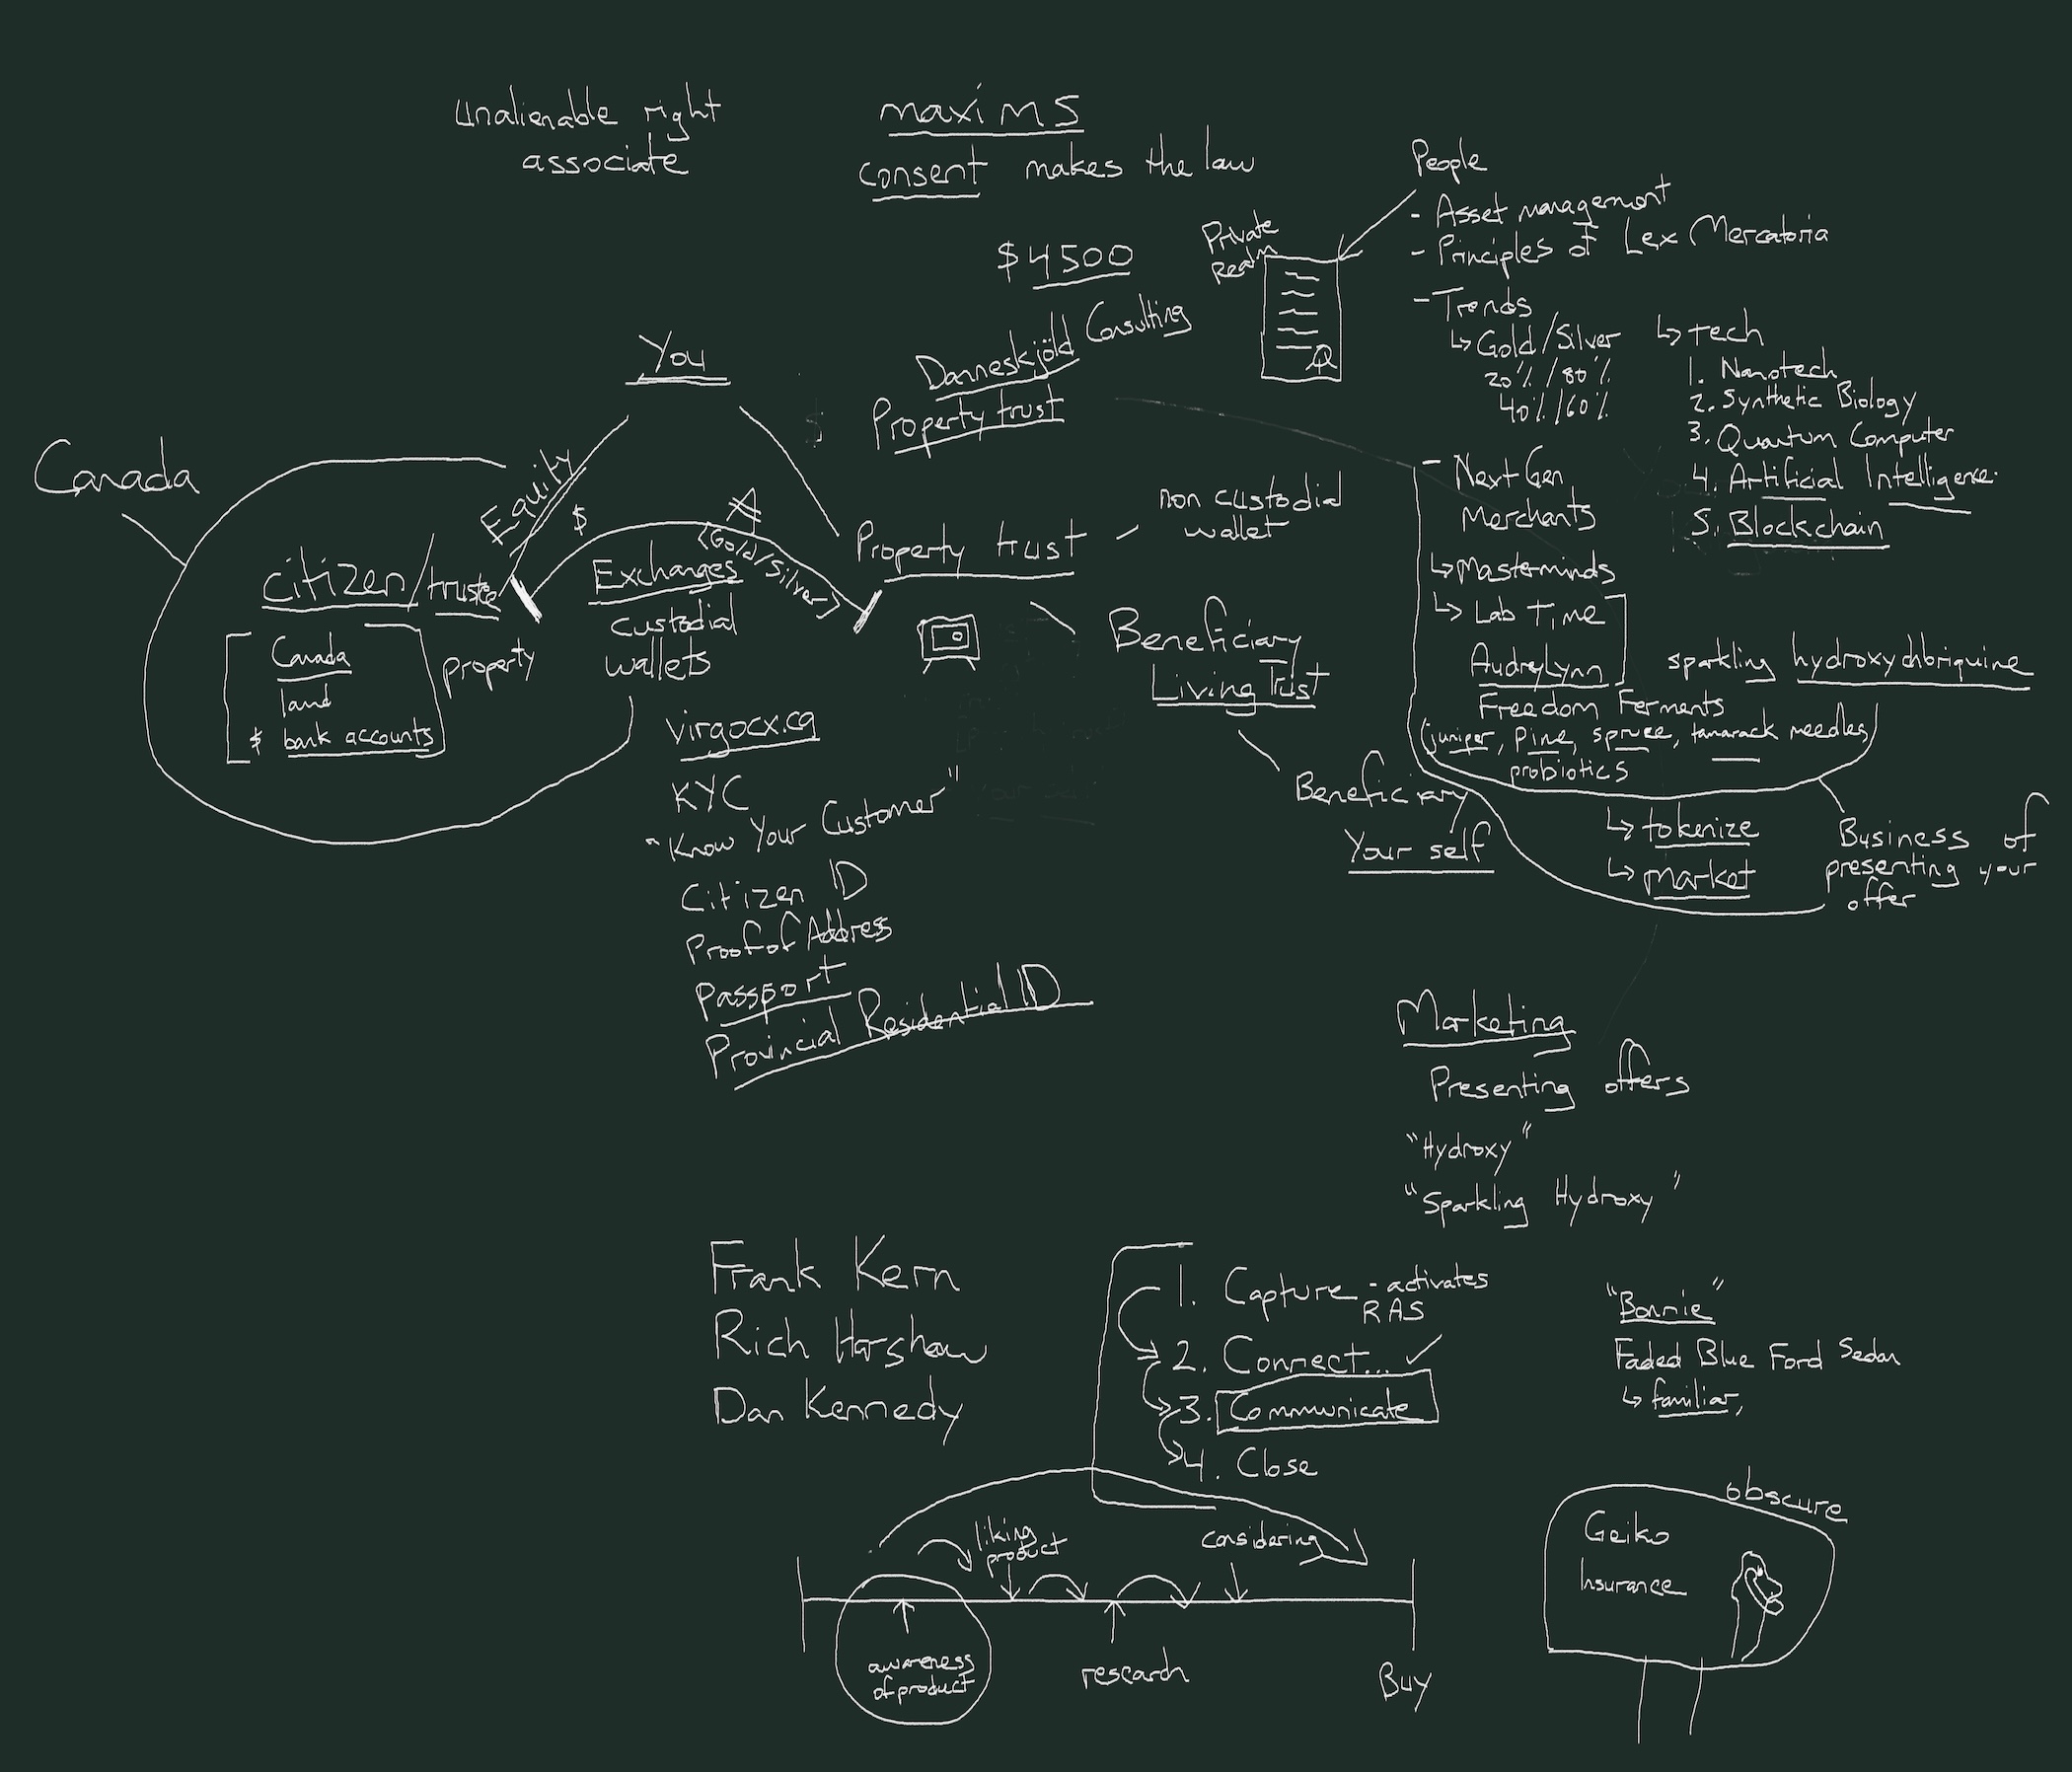 unalienable right
associate
maxims
consent makes the law
$4500
Danneskjöld Consulting
Property trust
Private
Realm
People
- Asset management
- Principles of Lex Mercatoria
- Trends
↳ Gold/Silver
20% / 80%
40% / 60%
↳ tech
1. Nanotech
2. Synthetic Biology
3. Quantum Computer
4. Artificial Intelligence
5. Blockchain
- Next Gen
Merchants
↳ Masterminds
↳ Lab Time
AudreyLynn
Freedom Ferments
(juniper, pine, spruce, tamarack needles)
probiotics
sparkling
↳ tokenize
↳ market
Business of
presenting your
offer
You
Canada
Equity
$
(Gold/Silver)
citizen/trustee
Canada
land
$ bank accounts
property
Exchanges
custodial
wallets
Property trust
non custodial
wallet
Beneficiary
Living Trust
Beneficiary
Your self
virgocx.ca
KYC
"Know Your Customer"
Citizen ID
Proof of Address
Passport
Provincial Residential ID
Marketing
Presenting offers
"Hydroxy"
"Sparkling Hydroxy"
Frank Kern
Rich Harshaw
Dan Kennedy
1. Capture - activates
RAS
2. Connect...
3. Communicate
4. Close
"Bonnie"
Faded Blue Ford Sedan
↳ familiar,
obscure
Geiko
Insurance
liking
product
considering
awareness
of product
research
Buy